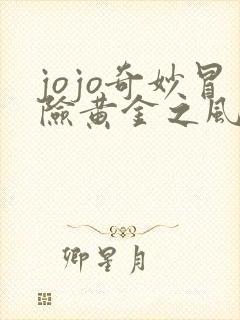 jojo奇妙冒
險黃金之風
卿星月